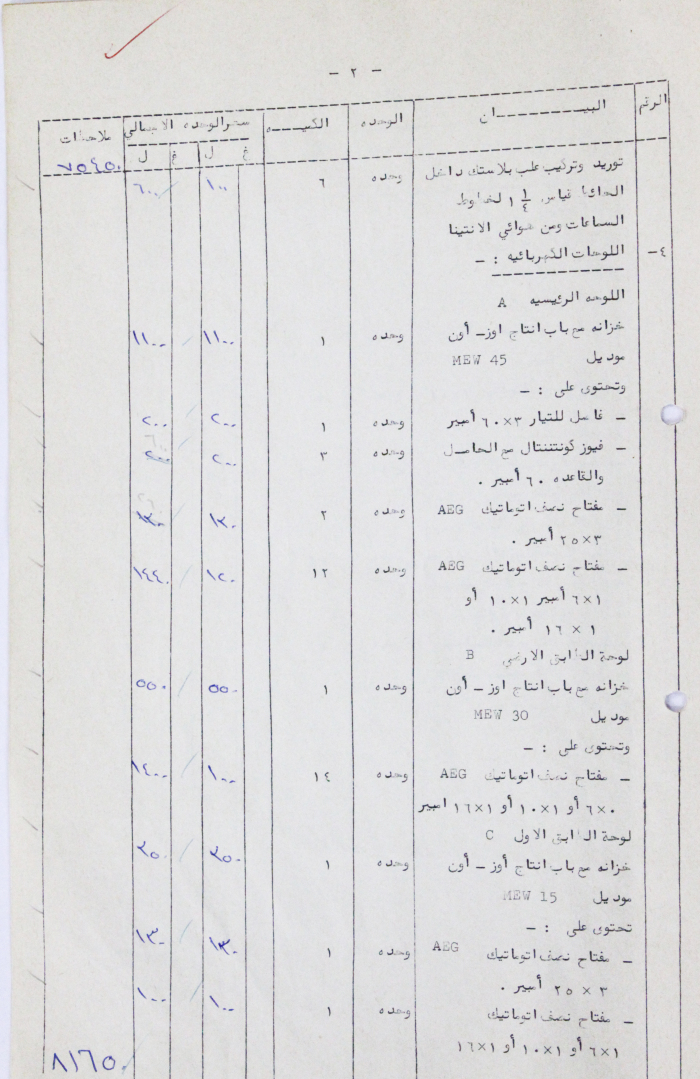 - ٢ -
الرقم البيـــــــان الوحده الكميـــه سعرالوحده الاجمالي ملاحظات
غ ل غ ل
٧٥٤٥٠
توريد وتركيب علب بلاستك داخل وحده ٦ ١٠٠ ٦٠٠
الحائط قياس ١ ١/٤ لخطوط
الساعات ومن هوائي الانتينا
٤- اللوحات الكهربائيه : -
اللوحه الرئيسيه A
خزانه مع باب انتاج اوز- أون وحده ١ ١١٠٠ ١١٠٠
موديل MEW 45
وتحتوى على : -
- فاصل للتيار ٣×٦٠ أمبير وحده ١ ٢٠٠ ٢٠٠
- فيوز كونتننتال مع الحامل وحده ٣ ٢٠٠ ٦٠٠
والقاعده ٦٠ أمبير .
- مفتاح نصف اتوماتيك AEG وحده ٢ ١٣٠ ١٣٠
٣×٢٥ أمبير .
- مفتاح نصف اتوماتيك AEG وحده ١٢ ١٢٠ ١٤٤٠
١×٦ أمبير ١×١٠ أو
١ × ١٦ أمبير .
لوحة الطابق الارضي B
خزانه مع باب انتاج اوز - أون وحده ١ ٥٥٠ ٥٥٠
موديل MEW 30
وتحتوى على : -
- مفتاح نصف اتوماتيك AEG وحده ١٤ ١٠٠ ١٤٠٠
٦×٠ أو ١×١٠ أو ١×١٦ امبير
لوحة الطابق الاول C
خزانه مع باب انتاج أوز - أون وحده ١ ٣٥٠ ٣٥٠
موديل MEW 15
تحتوى على : -
- مفتاح نصف اتوماتيك AEG وحده ١ ١٣٠ ١٣٠
٣ × ٢٥ أمبير .
- مفتاح نصف اتوماتيك وحده ١ ١٠٠ ١٠٠
١×٦ أو ١×١٠ أو ١×١٦
٨١٦٥٠